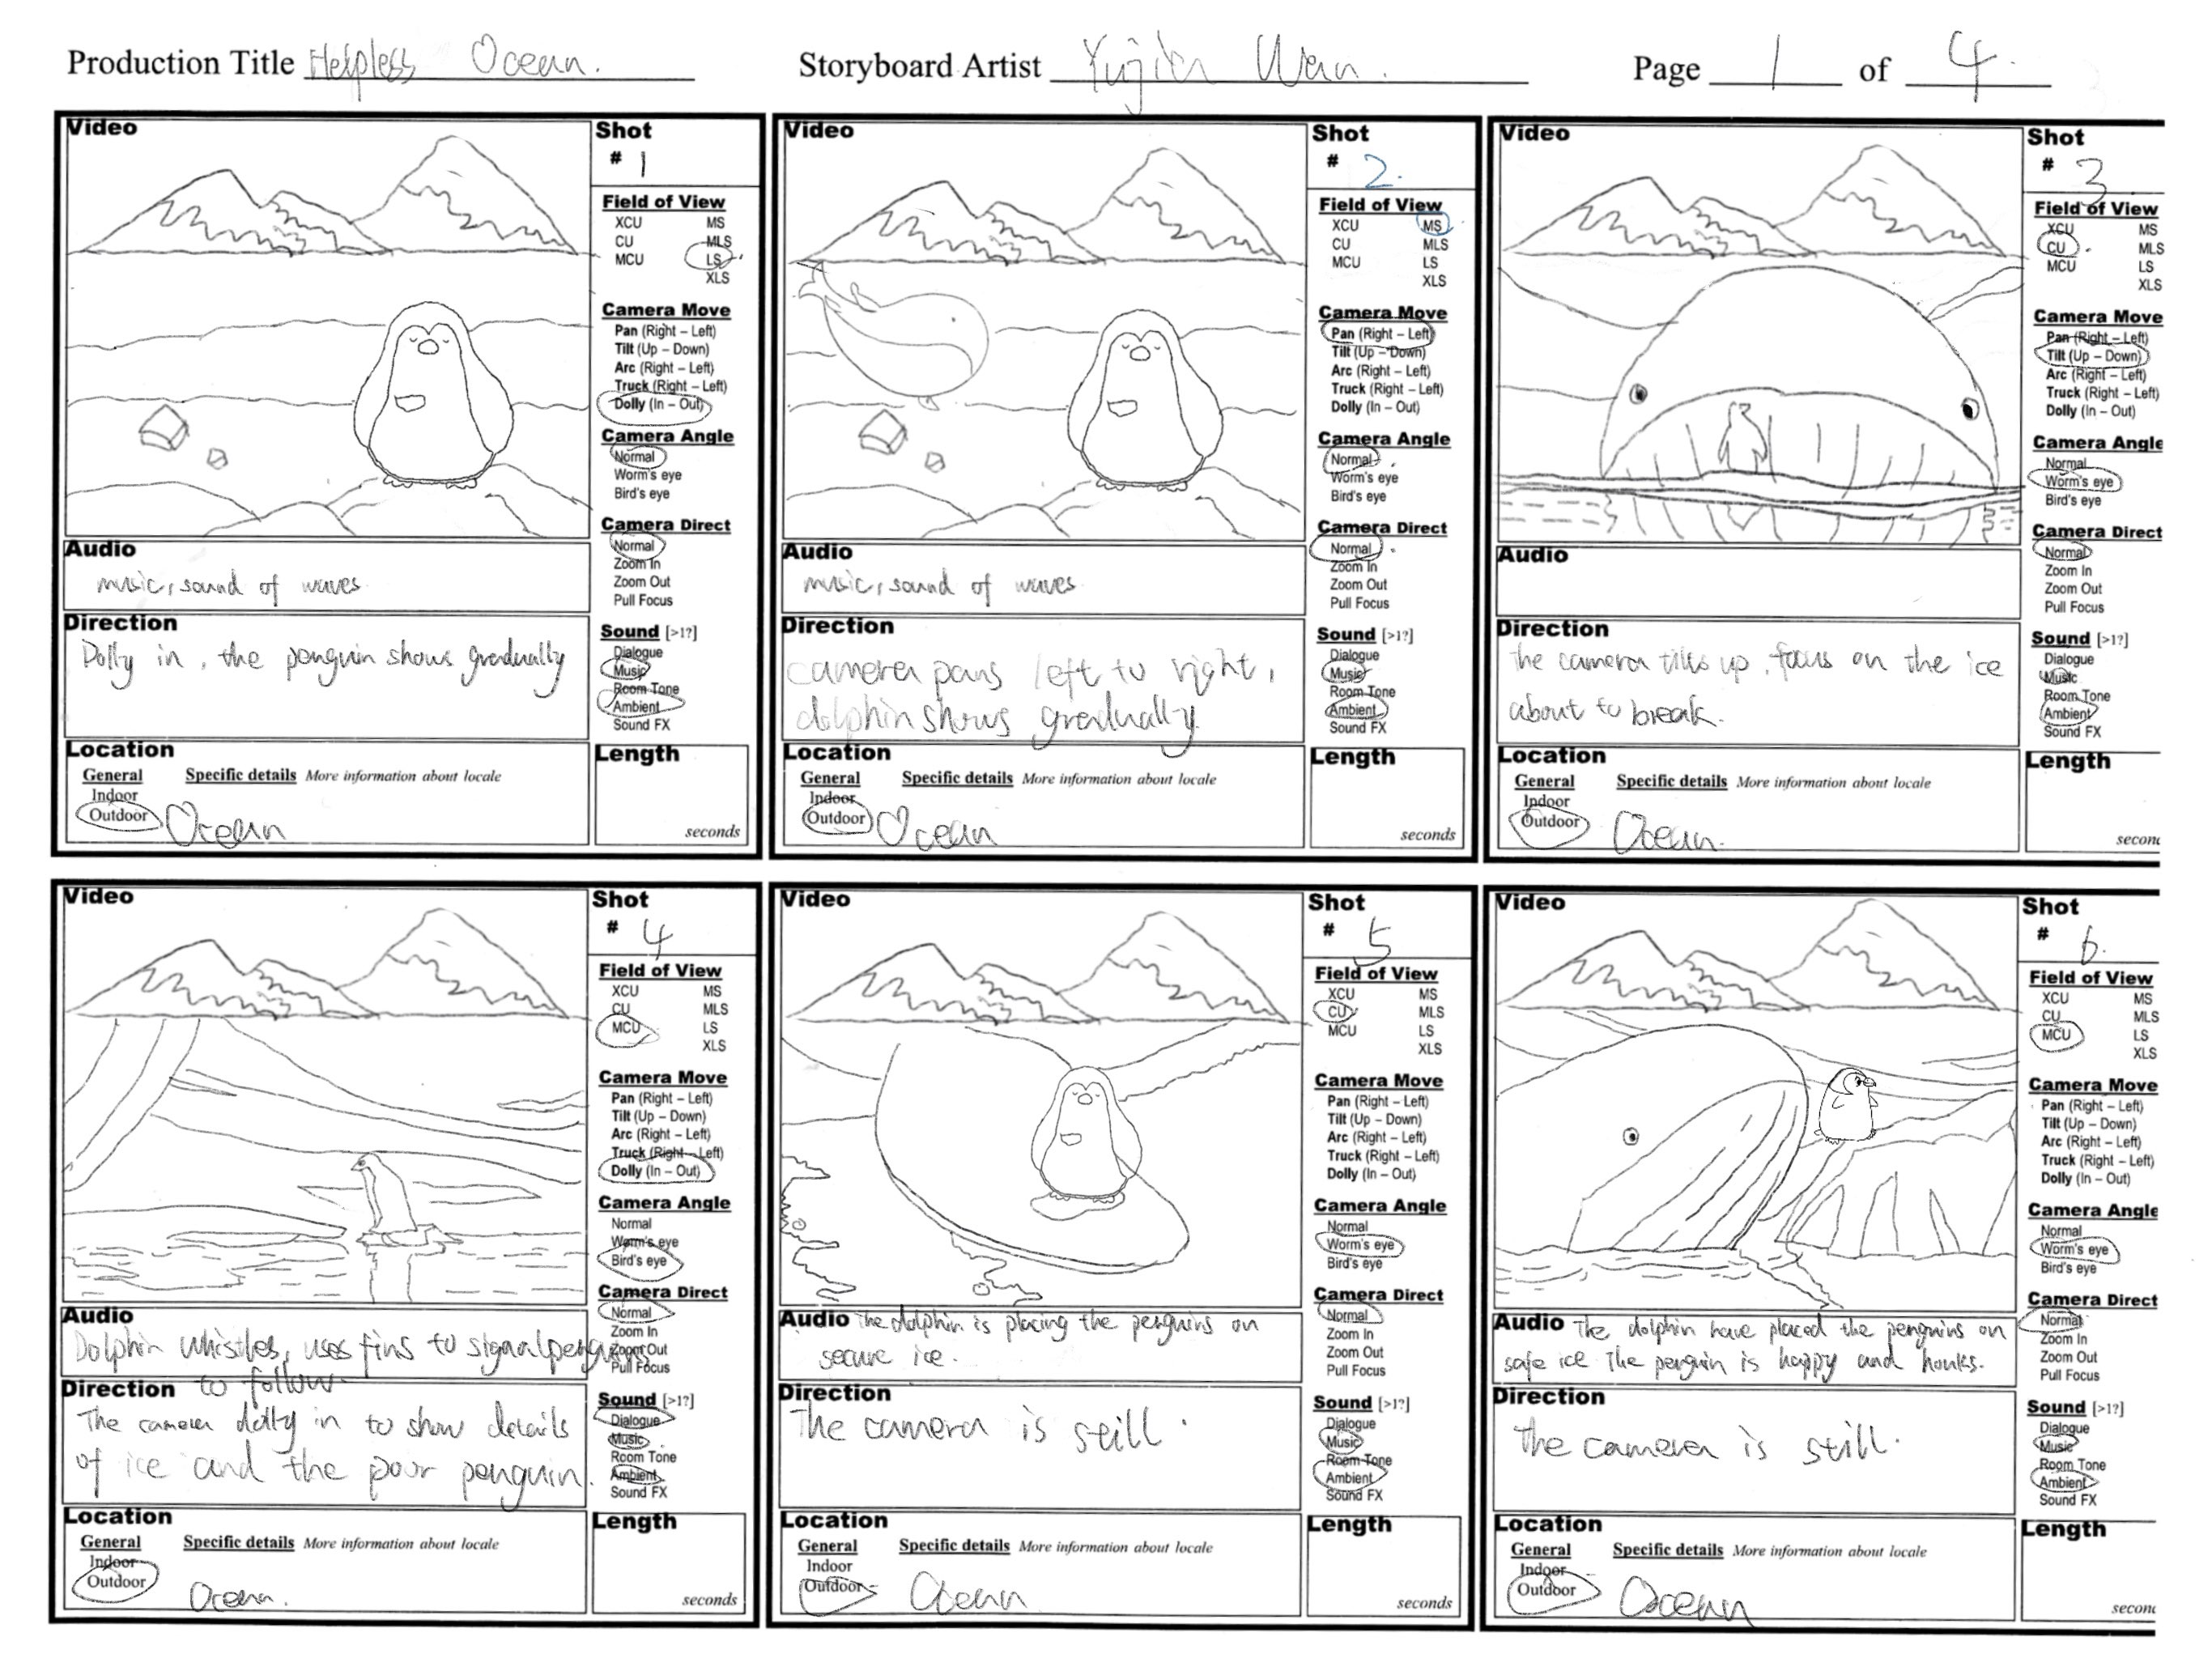 Production Title Helpless Ocean.
Storyboard Artist Yujia Wan.
Page 1 of 4.
Video
Shot
# 1
Field of View
XCU MS
CU MLS
MCU LS
XLS
Camera Move
Pan (Right – Left)
Tilt (Up – Down)
Arc (Right – Left)
Truck (Right – Left)
Dolly (In – Out)
Camera Angle
Normal
Worm's eye
Bird's eye
Camera Direct
Normal
Zoom In
Zoom Out
Pull Focus
Sound [>1?]
Dialogue
Music
Room Tone
Ambient
Sound FX
Audio
music, sound of waves
Direction
Dolly in, the penguin shows gredually
Location
General Specific details More information about locale
Indoor
Outdoor Ocean
Length
seconds
Video
Shot
# 2.
Field of View
XCU MS
CU MLS
MCU LS
XLS
Camera Move
Pan (Right – Left)
Tilt (Up – Down)
Arc (Right – Left)
Truck (Right – Left)
Dolly (In – Out)
Camera Angle
Normal
Worm's eye
Bird's eye
Camera Direct
Normal
Zoom In
Zoom Out
Pull Focus
Sound [>1?]
Dialogue
Music
Room Tone
Ambient
Sound FX
Audio
music, sound of waves
Direction
camera pans left to right,
dolphin shows gredually
Location
General Specific details More information about locale
Indoor
Outdoor Ocean
Length
seconds
Video
Shot
# 3
Field of View
XCU MS
CU MLS
MCU LS
XLS
Camera Move
Pan (Right – Left)
Tilt (Up – Down)
Arc (Right – Left)
Truck (Right – Left)
Dolly (In – Out)
Camera Angle
Normal
Worm's eye
Bird's eye
Camera Direct
Normal
Zoom In
Zoom Out
Pull Focus
Sound [>1?]
Dialogue
Music
Room Tone
Ambient
Sound FX
Audio
Direction
the camera tilts up, focus on the ice
about to break.
Location
General Specific details More information about locale
Indoor
Outdoor Ocean.
Length
secon
Video
Shot
# 4
Field of View
XCU MS
CU MLS
MCU LS
XLS
Camera Move
Pan (Right – Left)
Tilt (Up – Down)
Arc (Right – Left)
Truck (Right – Left)
Dolly (In – Out)
Camera Angle
Normal
Worm's eye
Bird's eye
Camera Direct
Normal
Zoom In
Zoom Out
Pull Focus
Sound [>1?]
Dialogue
Music
Room Tone
Ambient
Sound FX
Audio
Dolphin whistles, uses fins to signal penguins
to follow.
Direction
The camera dolly in to show details
of ice and the poor penguin.
Location
General Specific details More information about locale
Indoor
Outdoor Ocean.
Length
seconds
Video
Shot
# 5
Field of View
XCU MS
CU MLS
MCU LS
XLS
Camera Move
Pan (Right – Left)
Tilt (Up – Down)
Arc (Right – Left)
Truck (Right – Left)
Dolly (In – Out)
Camera Angle
Normal
Worm's eye
Bird's eye
Camera Direct
Normal
Zoom In
Zoom Out
Pull Focus
Sound [>1?]
Dialogue
Music
Room Tone
Ambient
Sound FX
Audio The dolphin is placing the penguins on
secure ice.
Direction
The camera is still.
Location
General Specific details More information about locale
Indoor
Outdoor Ocean
Length
seconds
Video
Shot
# 6.
Field of View
XCU MS
CU MLS
MCU LS
XLS
Camera Move
Pan (Right – Left)
Tilt (Up – Down)
Arc (Right – Left)
Truck (Right – Left)
Dolly (In – Out)
Camera Angle
Normal
Worm's eye
Bird's eye
Camera Direct
Normal
Zoom In
Zoom Out
Pull Focus
Sound [>1?]
Dialogue
Music
Room Tone
Ambient
Sound FX
Audio The dolphin have placed the penguins on
safe ice. The penguin is happy and honks.
Direction
The camera is still.
Location
General Specific details More information about locale
Indoor
Outdoor Ocean
Length
secon